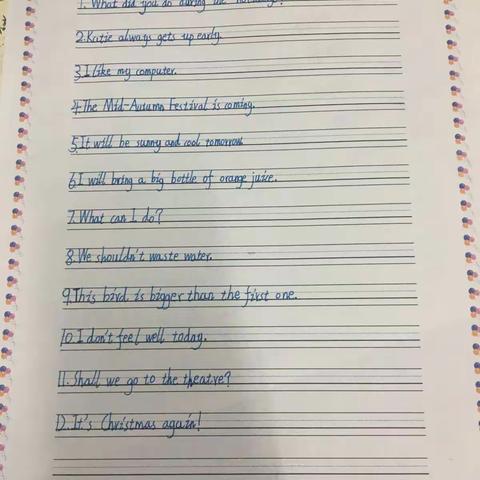 1. What did you do during the holidays?
2. Katie always gets up early.
3. I like my computer.
4. The Mid-Autumn Festival is coming.
5. It will be sunny and cool tomorrow.
6. I will bring a big bottle of orange juice.
7. What can I do?
8. We shouldn't waste water.
9. This bird is bigger than the first one.
10. I don't feel well today.
11. Shall we go to the theatre?
12. It's Christmas again!